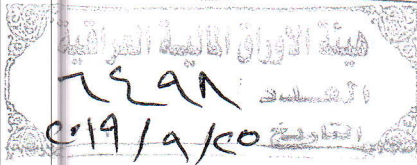 هيئة الاوراق المالية العراقية
العدد ٦٤٩٨
التاريخ ٢٠١٩/٩/٢٥